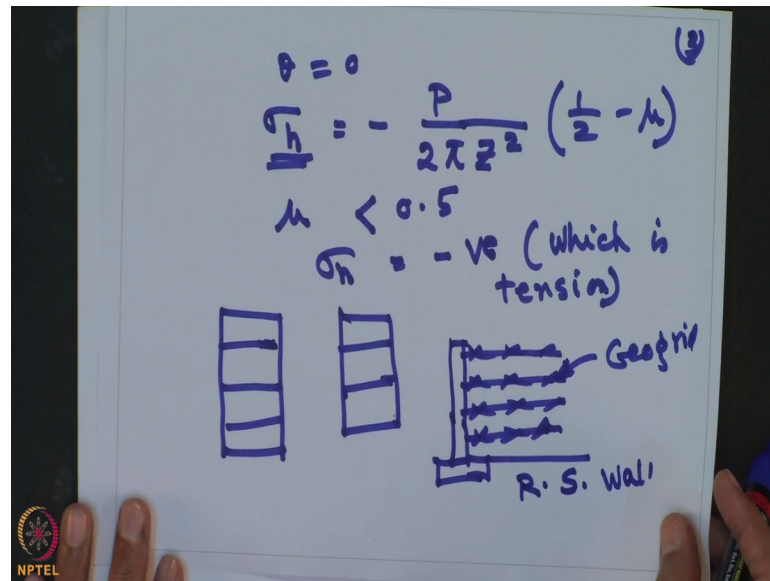 (3)
θ = 0
σh = - P / 2πz² (1/2 - μ)
μ < 0.5
σh = - ve (which is
tension)
Geogri
R. S. Wal
NPTEL